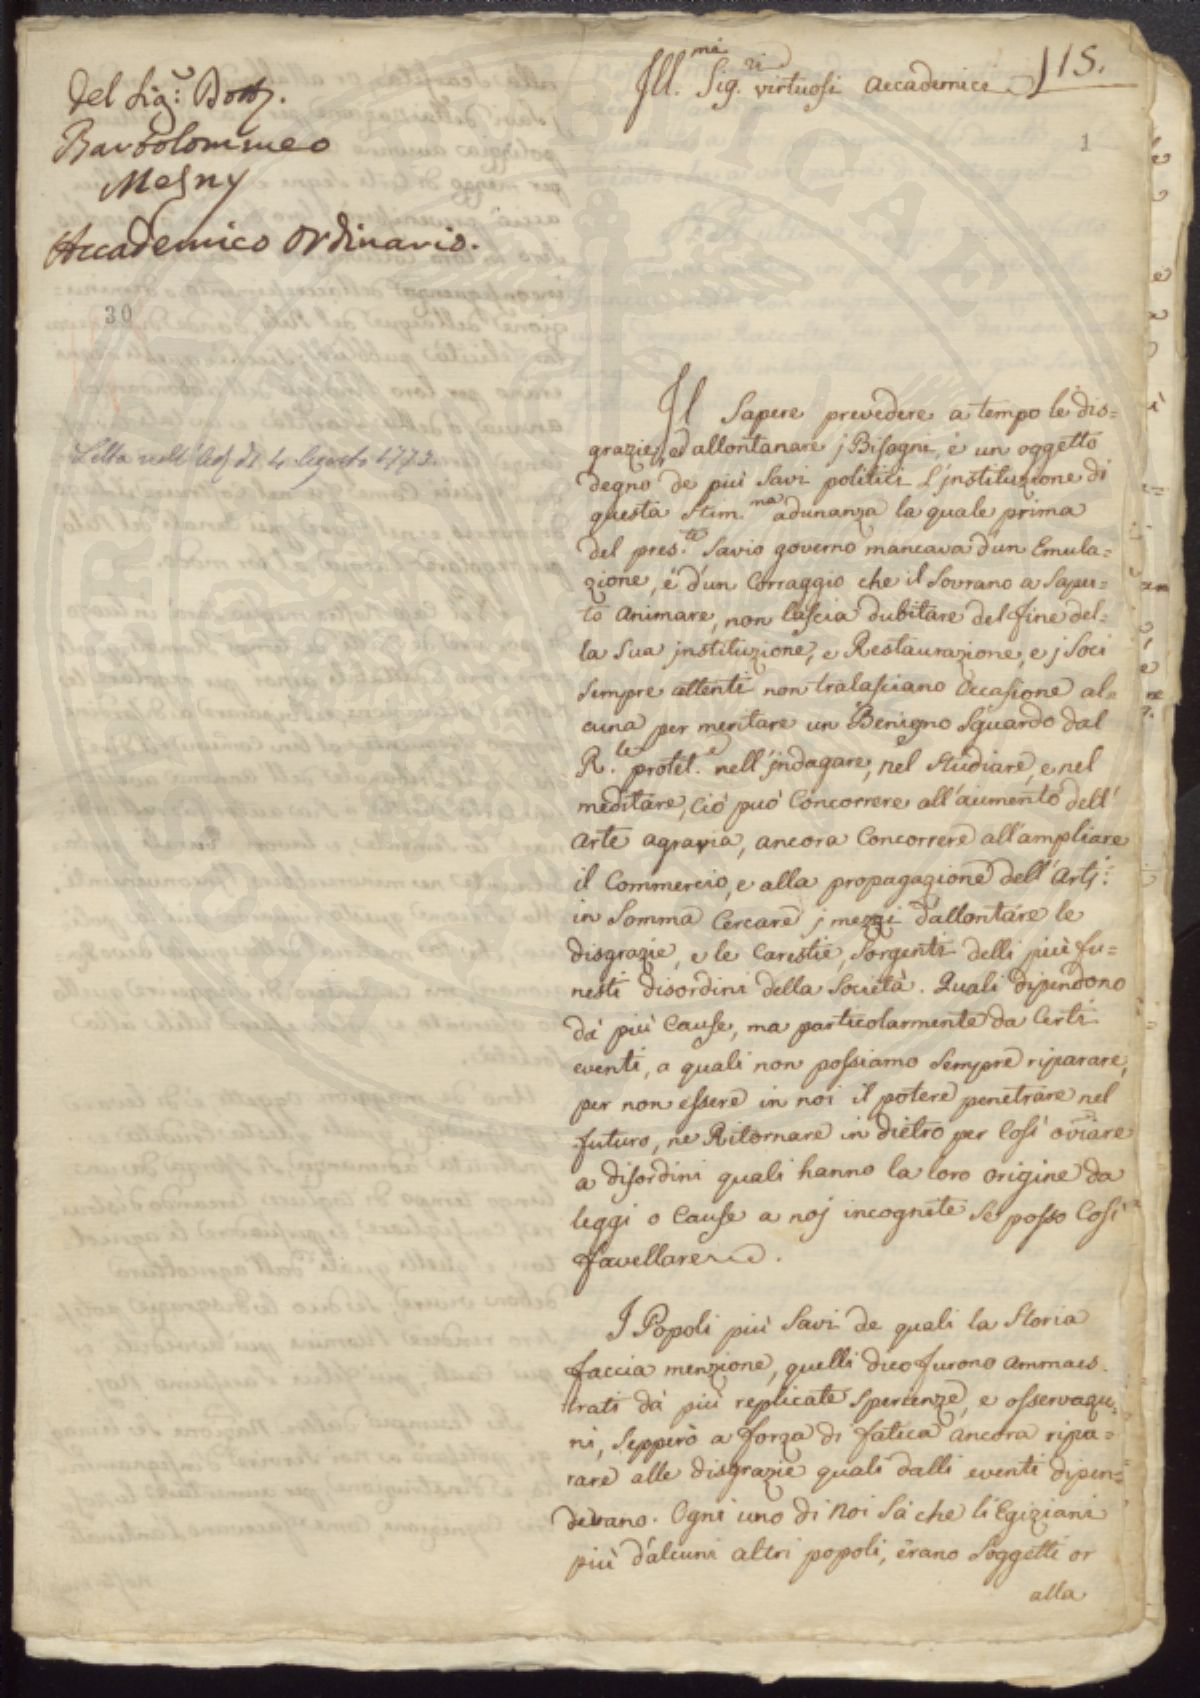 Ill.mi Sig.ri virtuosi accademici
115.
1
del Sig.r Dott.
Bartolommeo
Mesny
Accademico Ordinario.
30
Letta nell' Ad. di 4 Agosto 1773.
Il Sapere prevedere a tempo le dis=
grazie, ed allontanare j Bisogni, è un oggetto
degno de più Savi politici L'jnstituzione di
questa Stim.ma adunanza la quale prima
del pres.te Savio governo mancava d'un Emula=
zione, è d'un Corraggio che il Sovrano a Sapu=
to animare, non lascia dubitare del fine del=
la Sua jnstituzione, e Restaurazione, e j Soci
Sempre attenti non tralasciano Occasione al=
cuna per meritare un Benigno Sguardo dal
R.le protet.e nell'jndagare, nel Studiare, e nel
meditare, Ciò può Concorrere all'aumento dell'
Arte agraria, ancora Concorrere all'ampliare
il Commercio, e alla propagazione dell'Artj:
in Somma Cercare j mezzi d'allontare le
disgrazie, e le Carestie, Sorgenti delli più fu=
nesti disordini della Società. Quali dipendono
dà più Cause, ma particolarmente da Certi
eventi, a quali non possiamo Sempre riparare,
per non essere in noi il potere penetrare nel
futuro, ne Ritornare in dietro per Così oviare
a disordini quali hanno la loro origine da
leggi o Cause a noj incognite Se posso Così
favellare.
I Popoli più Savi de quali la Storia
faccia menzione, quelli dico furono ammaes=
trati dà più replicate Sperienze, e osservazio=
ni, Seppero a forza di fatica ancora ripa=
rare alle disgrazie quali dalli eventi dipen=
devano. Ogni uno di noi Sà che li Egiziani
più d'alcuni altri popoli, erano Soggetti or
alla